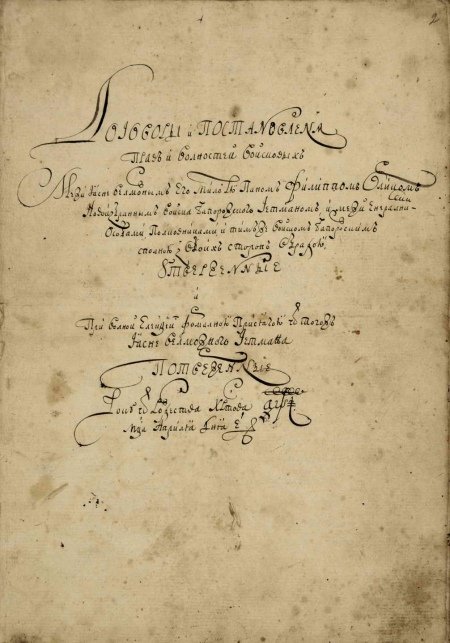 2
Договоры и Постановленѧ
Правъ и волностей войсковыхъ
Межи Ясне велможнымъ Его Милостю Паномъ Филиппомъ Орликомъ
Новоизбраннымъ войска Запорозского Гетманомъ, и межи Енералними
Особами Полковниками и тимже войскомъ Запорозскимъ
сполною з обоихъ сторонъ обрадою
Утверженные
и
При волной Елекции формалною Присягою ѿ тогожъ
Ясне велможного Гетмана
Потверженные
Року ѿ Рождества Христова аѱі
Мца Априля Дня е